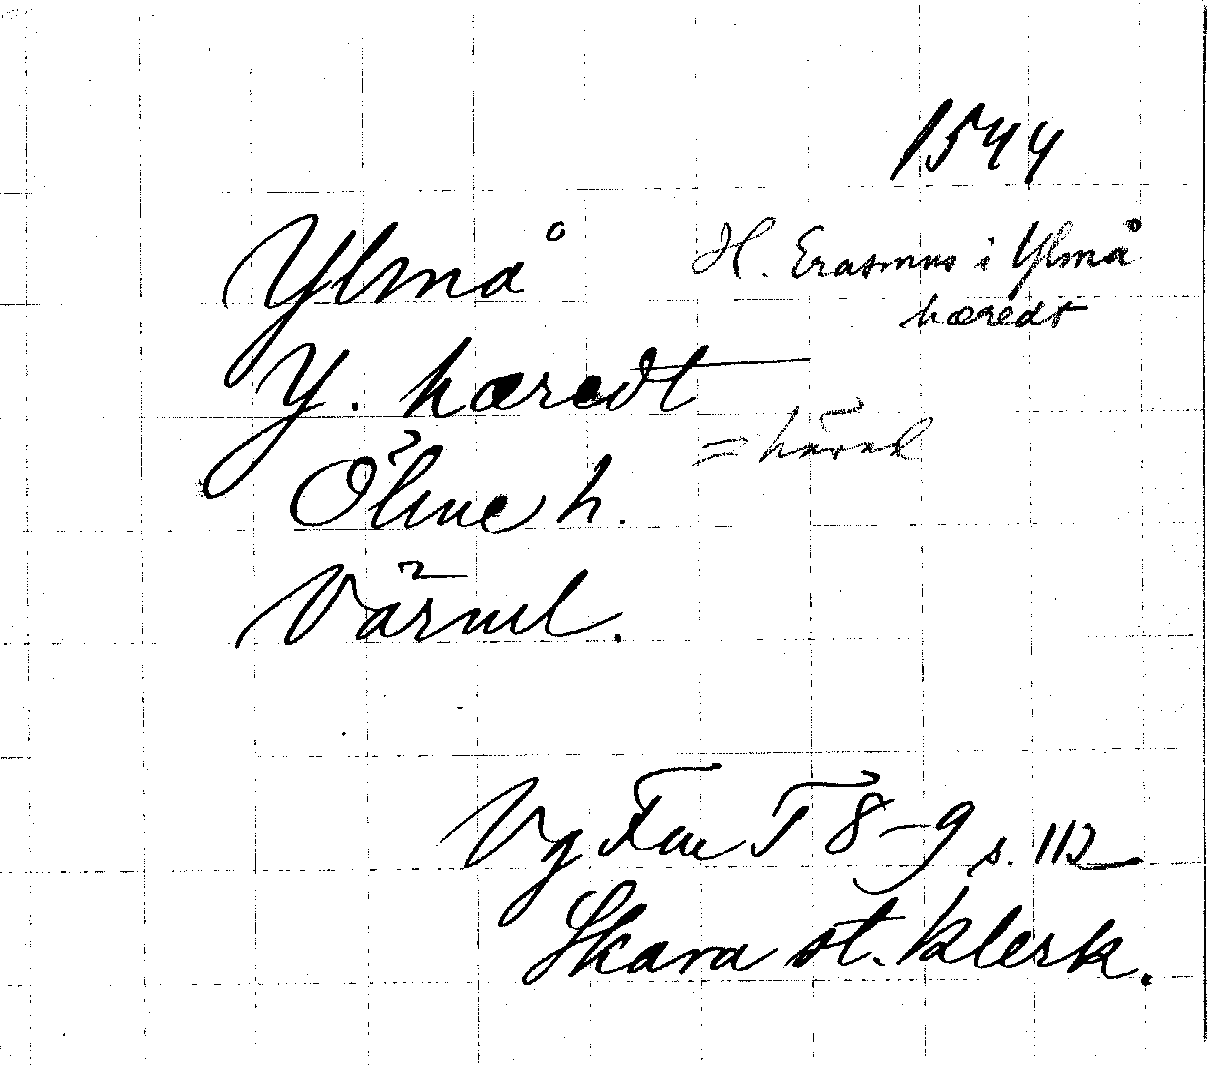 1544
Ylmå
H. Erasmus i Ylmå
hæredt
Y. hæredt
= härad
Ölme h.
Värml.
Vg Fm T 8-9 s. 112
Skara st. klerk.